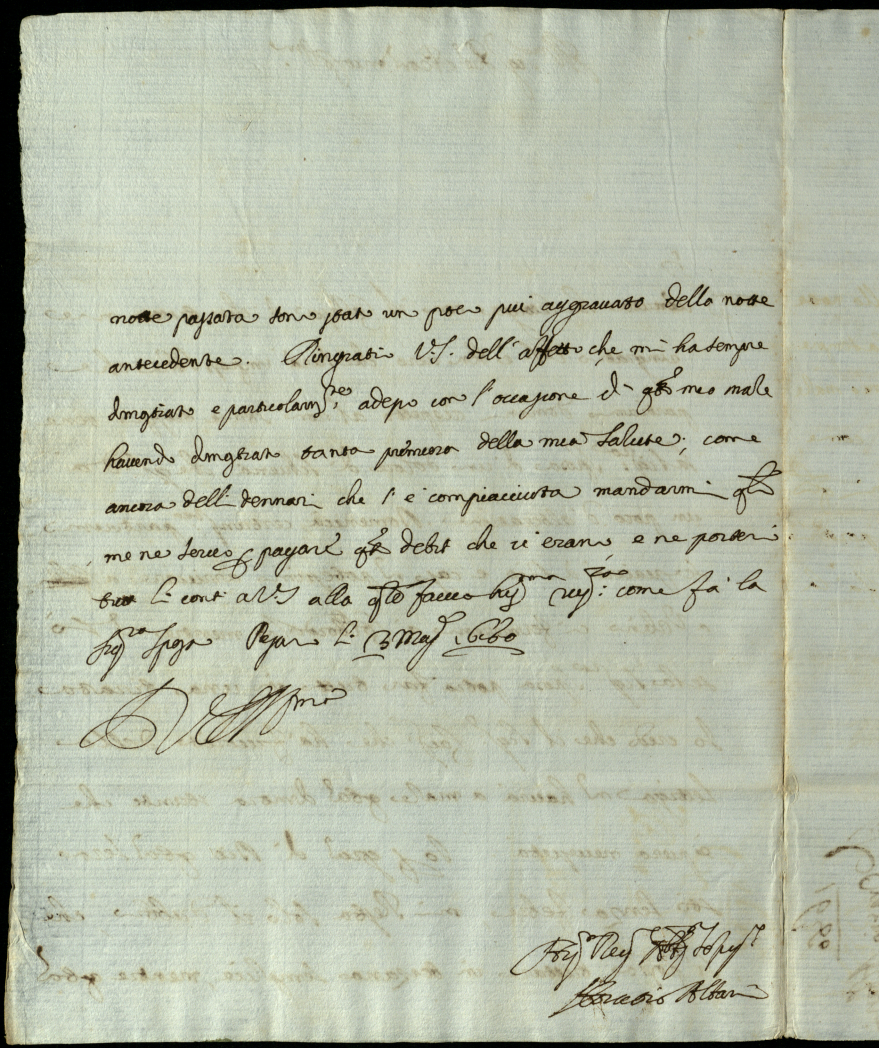 notte passata son stato un poco più aggravato della notte
antecedente. Ringratio V.S. dell'affetto che mi ha sempre
dimostrato e particolarmte adesso con l'occasione di qsto mio male
havendo dimostrato tanta premura della mia salute, come
ancora delli dennari che s'è compiacciuta mandarmi qli
me ne servo p pagare qti debiti che vi erano e ne porterò
li conti a V.S. alla qle faccio humma revza come fà la
Sigra Sposa Pesaro li 3 Magg 1680
D V S Illma
Horatio Albani